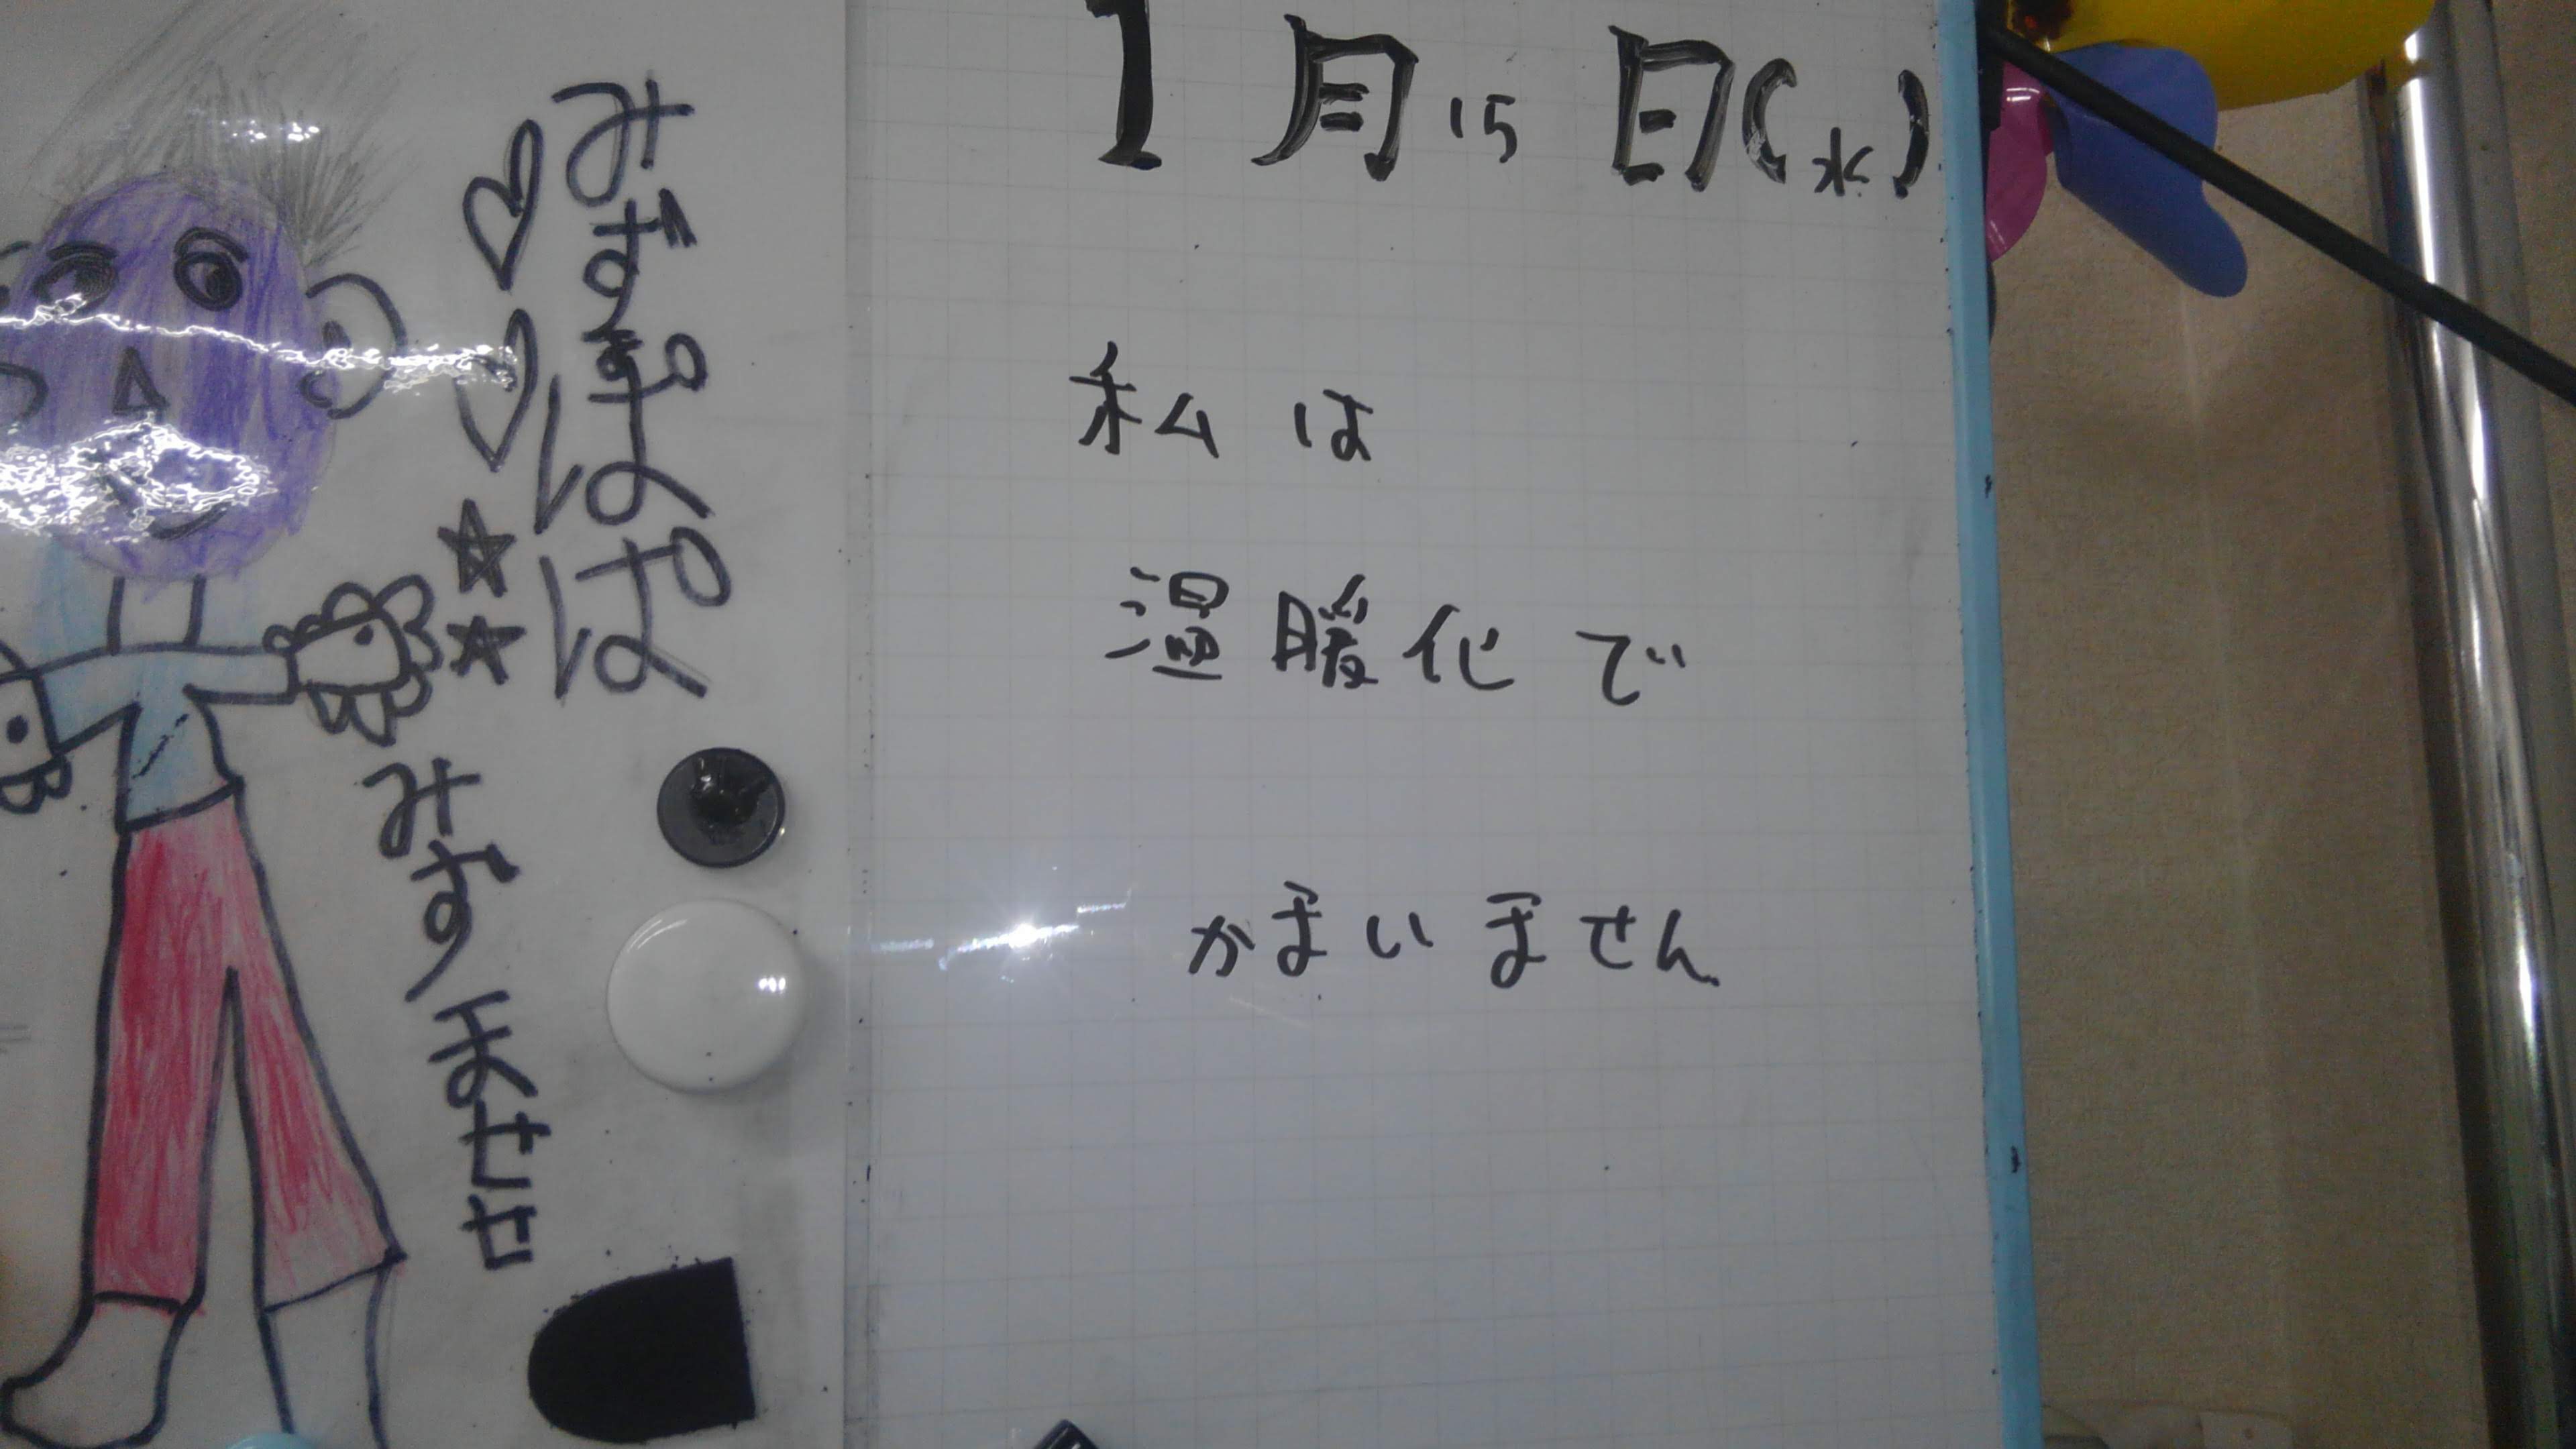 1月15日(水)
私は
温暖化で
かまいません
みずぽぱ
みずませせ